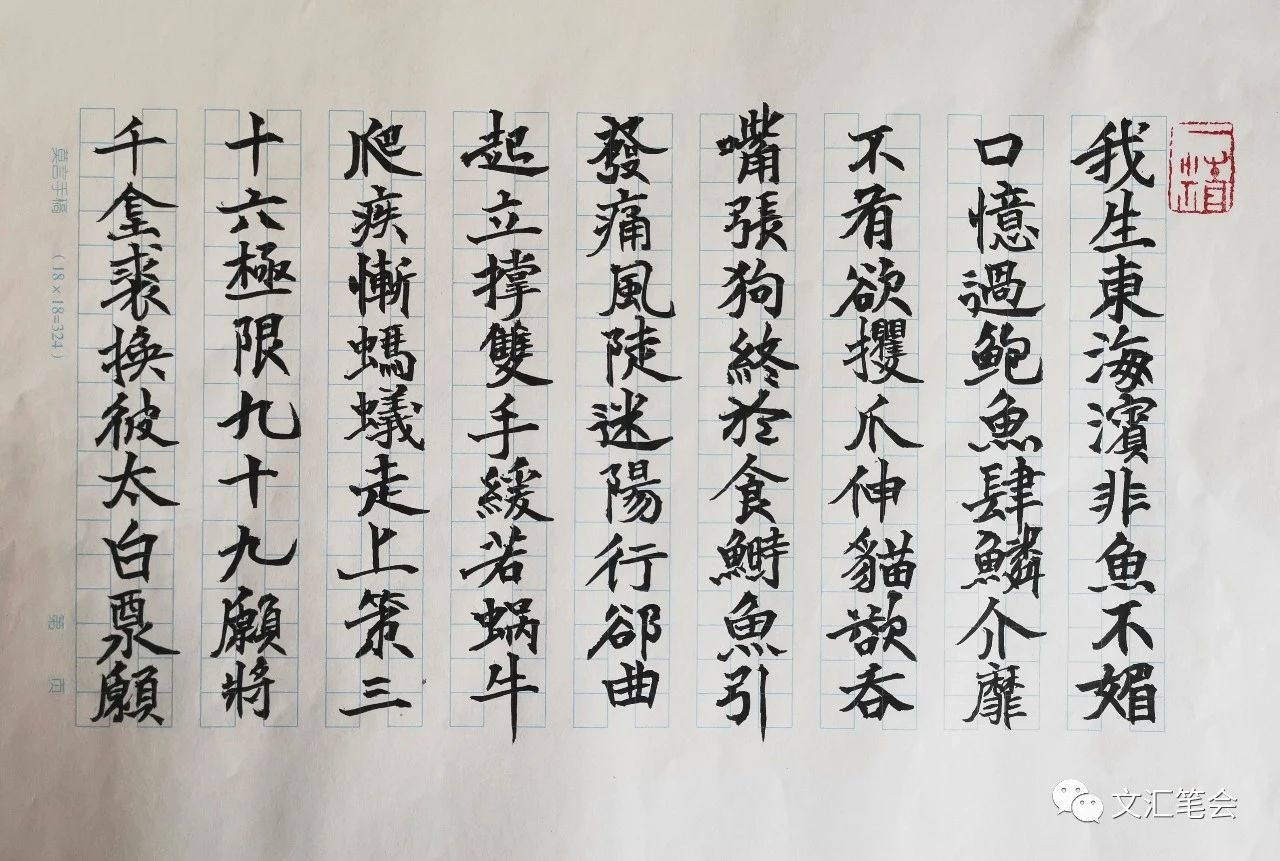 我生東海濱非魚不媚
口憶過鮑魚肆鱗介靡
不肴欲攫爪伸貓欻吞
嘴張狗終於食鰣魚引
發痛風陡迷陽行郤曲
起立撑雙手緩若蝸牛
爬疾慚螞蟻走上策三
十六極限九十九願將
千金裘換彼太白票願
莫言手稿（18×18=324） 第 页
文汇笔会